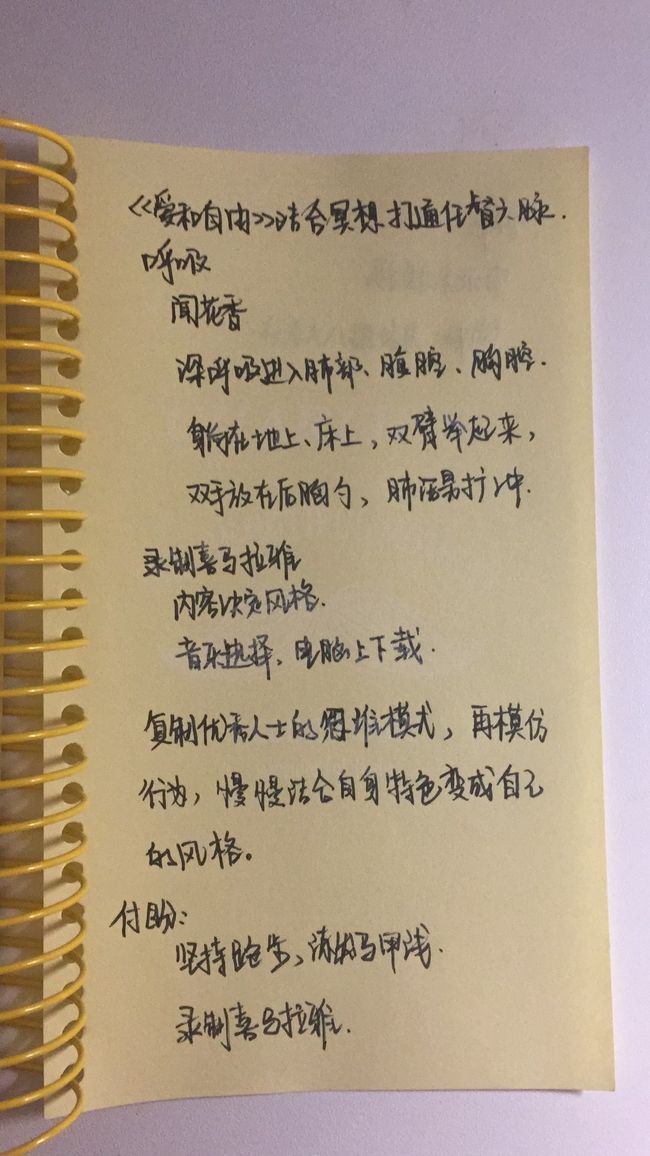 《爱和自由》结合冥想打通任督六脉.
呼吸
闻花香
深呼吸进入肺部、腹腔、胸腔.
躺在地上、床上，双臂举起来，
双手放在后胸勺，肺活量扩冲.
录制喜马拉雅
内容决定风格.
音乐选择，电脑上下载.
复制优秀人士的思维模式，再模仿
行为，慢慢结合自身特色变成自己
的风格。
付盼：
坚持跑步，练的马甲线.
录制喜马拉雅.